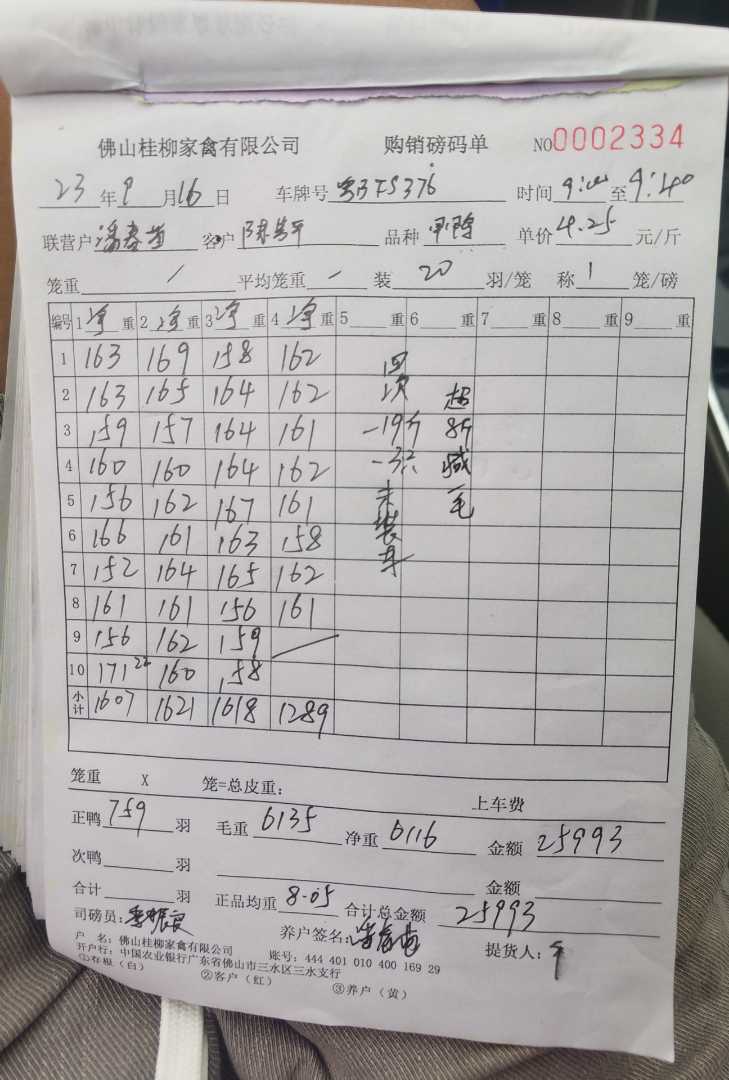 佛山桂柳家禽有限公司 购销磅码单 NO0002334
23年9月16日 车牌号 FS376 时间9:00至9:40
联营户 潘春苗 客户 陈 平 品种 单价4.25元/斤
笼重 / 平均笼重 - 装 20 羽/笼 称 1 笼/磅
编号 1净重 2净重 3净重 4净重 5 重 6 重 7 重 8 重 9 重
1 163 169 158 162
2 163 165 164 162
3 159 157 164 161
4 160 160 164 162
5 156 162 167 161
6 166 161 163 158
7 152 164 165 162
8 161 161 156 161
9 156 162 159
10 171 22 160 158
小计 1607 1621 1618 1289
四次
-19斤
-3只
未装车
超8斤减毛
笼重 X 笼=总皮重:
上车费
正鸭 759 羽 毛重 6135 净重 6116 金额 25993
次鸭 羽 金额
合计 羽 正品均重 8.05 合计总金额 25993
司磅员: 李振良 养户签名: 潘春苗 提货人: 平
户 名: 佛山桂柳家禽有限公司
开户行: 中国农业银行广东省佛山市三水区三水支行 账号: 444 401 010 400 169 29
①存根(白) ②客户(红) ③养户(黄)